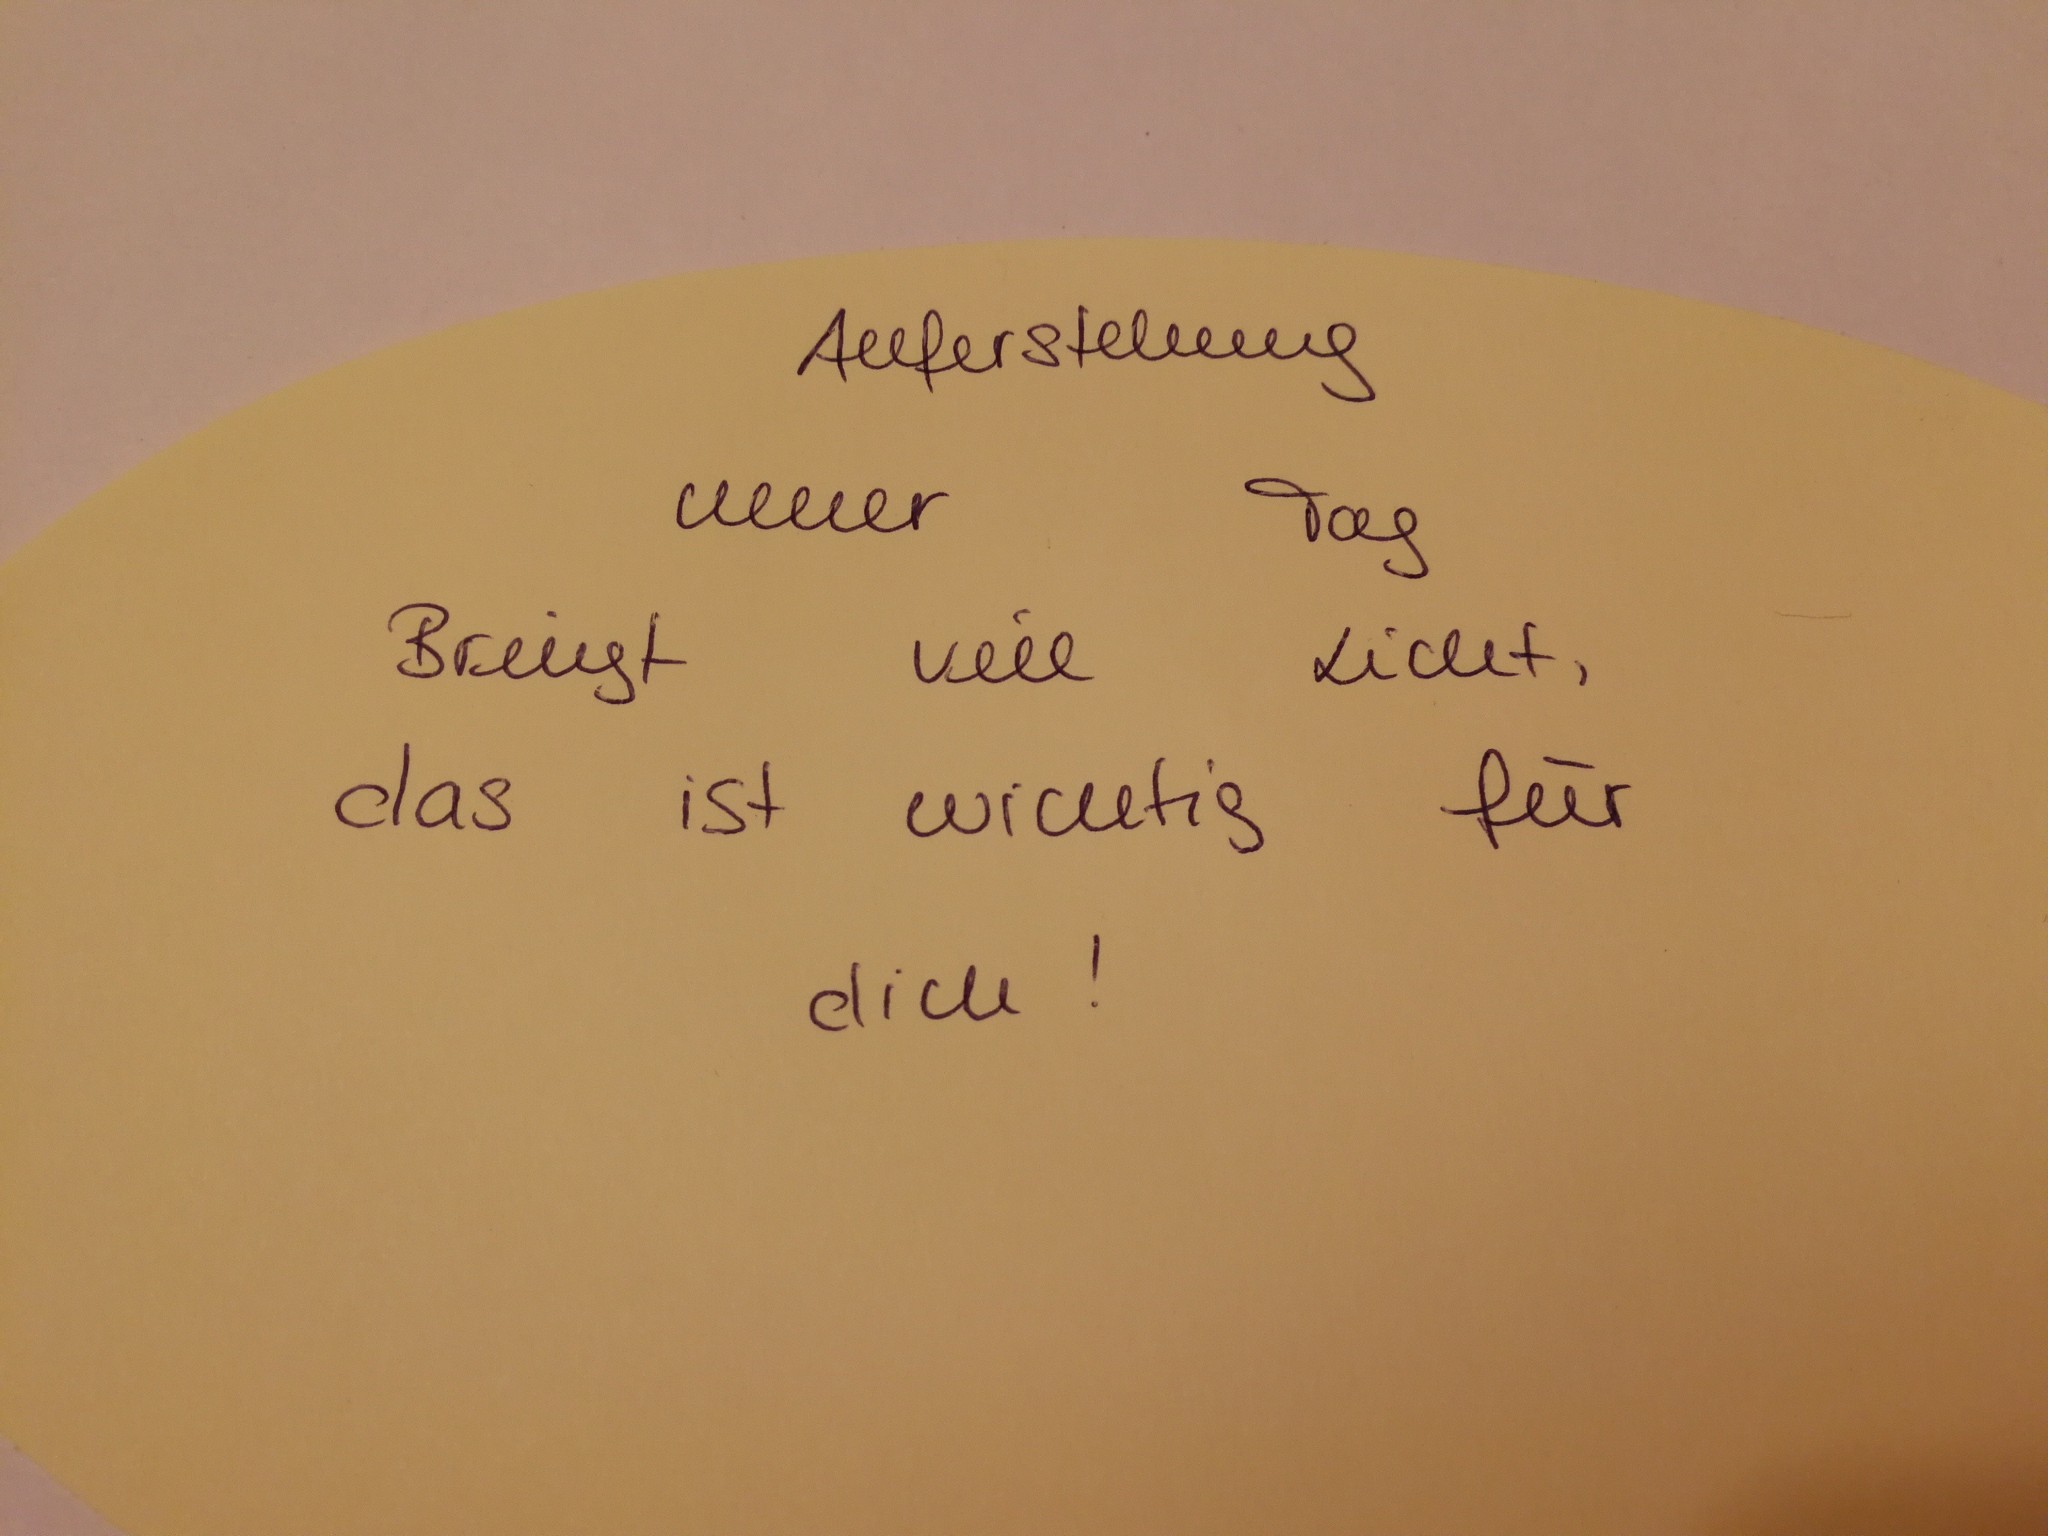 Auferstehung
neuer Tag
Bringt viel Licht,
das ist wichtig für
dich !